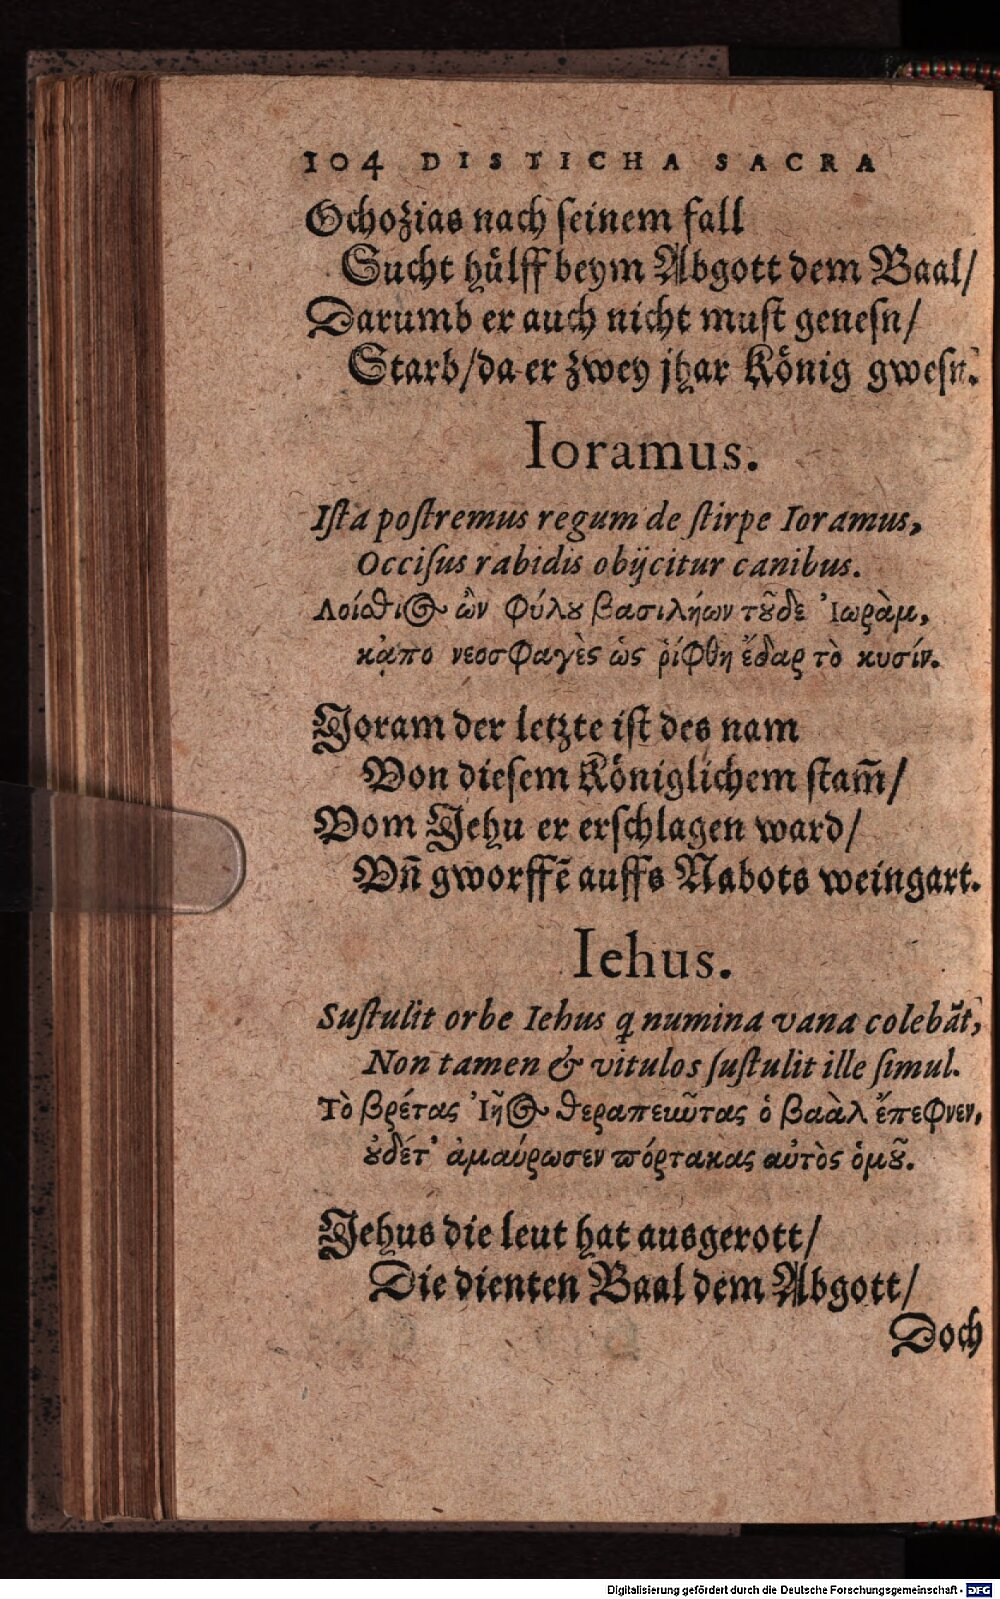 104 DISTICHA SACRA
Ochozias nach ſeinem fall
Sucht huͤlff beym Abgott dem Baal/
Darumb er auch nicht muſt geneſn/
Starb/da er zwey jhar Koͤnig gweſn.
Ioramus.
Iſta poſtremus regum de ſtirpe Ioramus,
Occiſus rabidis obijcitur canibus.
Λοίσθιος ὢν φύλου βασιλήων τοῦδε Ἰωρὰμ,
νεοσφαγὲς ὡς ῥίφθη ἔδαρ τὸ κυσίν.
Joram der letzte iſt des nam
Von dieſem Koͤniglichem ſtam̃/
Vom Jehu er erſchlagen ward/
Vñ gworffẽ auffs Nabots weingart.
Iehus.
Suſtulit orbe Iehus q numina vana colebãt,
Non tamen & vitulos ſuſtulit ille ſimul.
Τὸ βρέτας Ἰῆος θεραπευῶτας ὁ βαὰλ ἔπεφνεν,
οὐδέτ' ἀμαύρωσεν πόρτακας αὐτὸς ὁμοῦ.
Jehus die leut hat ausgerott/
Die dienten Baal dem Abgott/
Doch
Digitalisierung gefördert durch die Deutsche Forschungsgemeinschaft - DFG